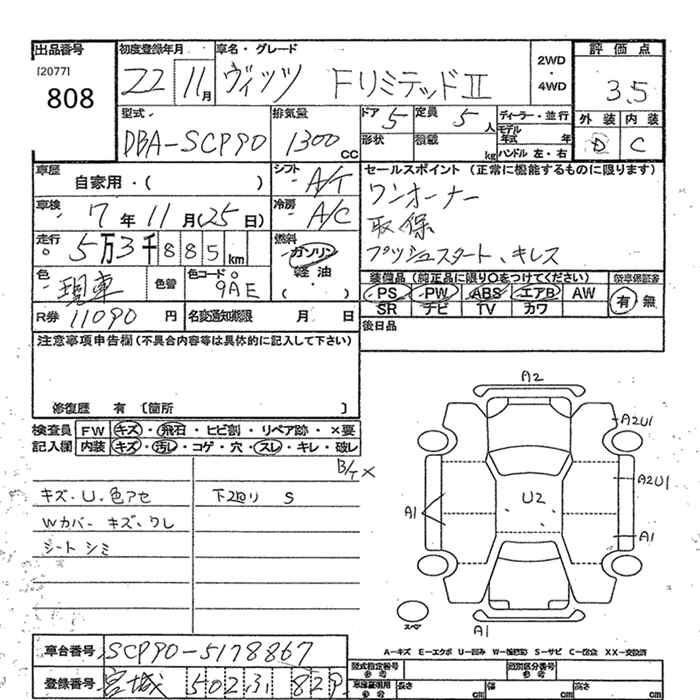 出品番号
[2077]
808
初度登録年月 22 11月
車名・グレード ヴィッツ FリミテッドⅡ
2WD・4WD
評価点 3.5
外装 内装
D C
型式 DBA-SCP90
排気量 1300cc
ドア 5 定員 5人
形状 積載 kg
ディーラー・並行
モデル年式 年
ハンドル 左・右
車歴 自家用・( )
車検 7年11月(25日)
走行 5万3千885km
色 現車 色替 色コード 9AE
シフト A/T
冷房 A/C
燃料 ガソリン
軽油
( )
セールスポイント (正常に機能するものに限ります)
ワンオーナー
取保
プッシュスタート、キレス
装備品(純正品に限り○をつけてください) 新車保証書
PS PW ABS エアB AW 有 無
SR ナビ TV カワ
後日品
R券 11090円 名変通知期限 月 日
注意事項申告欄(不具合内容等は具体的に記入して下さい)
修復歴 有 〔箇所 〕
検査員 FW キズ・飛石・ヒビ割・リペア跡・×要
記入欄 内装 キズ・汚レ・コゲ・穴・スレ・キレ・破レ
B/ケ×
キズ・U・色アセ 下廻り S
Wカバー キズ、ワレ
シート シミ
A2
A2U1
A2U1
U2
A1
A1
A1
スペア
A-キズ E-エクボ U-凹み W-補修跡 S-サビ C-腐食 XX-交換済
車台番号 SCP90-5178867
登録番号 宮城 502 ふ 829
型式指定番号 類別区分番号
車庫証明用参考 長さ cm 幅 cm 高さ cm